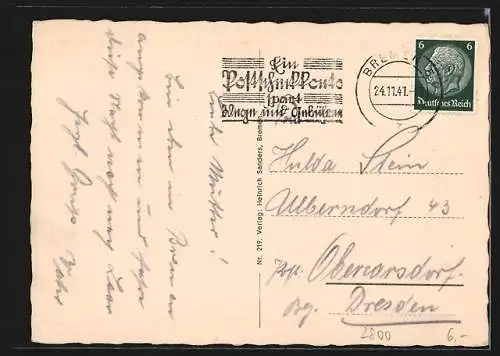 Liebe Mutter!
bin eben in Bremen
angekommen und fahre
diese Nacht noch nach
Ein
Postscheckkonto
spart
Wege und Gebühren
BREMEN
24.11.41.
6 6
Deutsches Reich
Nr. 219. Verlag: Heinrich Sanders, Bremen
Hulda Stein
Ulberndorf 43
Obercarsdorf
Bz. Dresden
2800
6,-